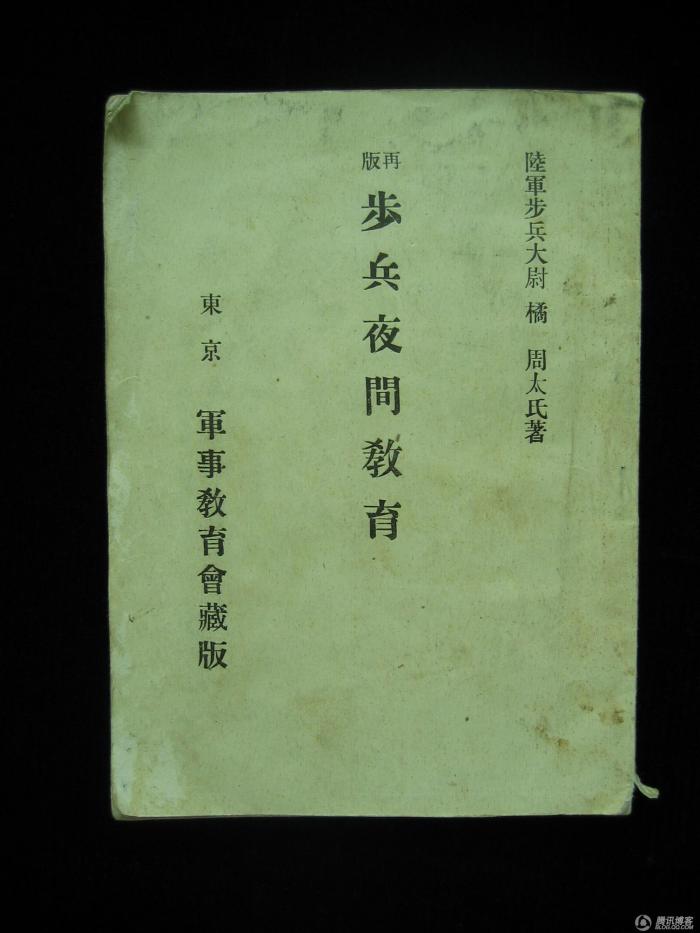 陸軍步兵大尉 橘 周太氏著
再版 步兵夜間教育
東京 軍事教育會藏版
腾讯博客
BLOG.QQ.COM